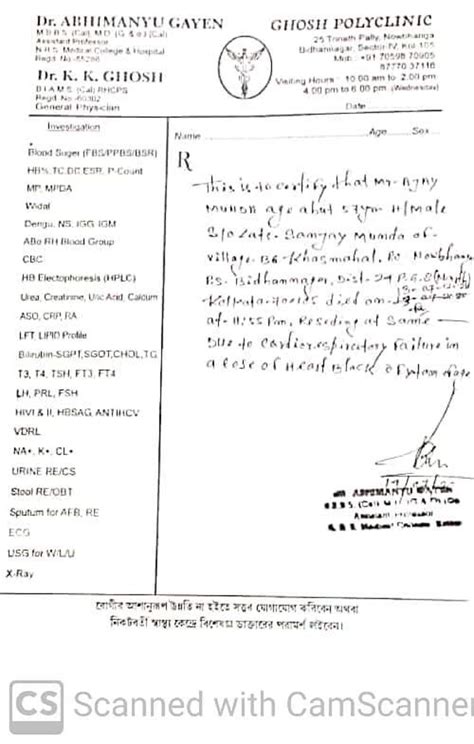 Dr. ABHIMANYU GAYEN
M.B.B.S. (Cal), M.D. (G & o) (Cal)
Assistant Professor
N.R.S. Medical College & Hospital
Regd. No-55286
Dr. K. K. GHOSH
B.I.A.M.S. (Cal) RHCPS
Regd. No-60302
General Physician
GHOSH POLYCLINIC
25 Trinath Pally, Nowbhanga
Bidhannagar, Sector-IV, Kol-105
Mob. : +91 70598 70905
87770 37116
Visiting Hours : 10.00 am to 2.00 pm
4.00 pm to 6.00 pm (Wednesday)
Date
Name Age Sex
Investigation
Blood Suger (FBS/PPBS/BSR)
HB%, TC, DC, ESR, P-Count
MP, MPDA
Widal
Dengu, NS, IGG, IGM
ABo RH Blood Group
CBC
HB Electophoresis (HPLC)
Urea, Creatinine, Uric Acid, Calcium
ASO, CRP, RA
LFT, LIPID Profile
Bilirubin-SGPT, SGOT, CHOL, TG
T3, T4, TSH, FT3, FT4
LH, PRL, FSH
HIVI & II, HBSAG, ANTIHCV
VDRL
NA+, K+, CL+
URINE RE/CS
Stool RE/OBT
Sputum for AFB, RE
ECG
USG for W/L/U
X-Ray
R
This is to certify that Mr. Ajay
Munda age abut 57yrs H/Male
S/o Late- Sanjay Munda of-
village- B6 Khasmahal, Po Nowbhanga
P.S- Bidhannagar, Dist- 24 P.G.S (North)
Kolkata- died on-
at- 11:55 Pm, Reseding at Same
Due to Cardiorespiratory Failure in
a Case of Heart Block
ABHIMANYU GAYEN
Assistant Professor
রোগীর আশানুরূপ উন্নতি না হইতে সত্তর যোগাযোগ করিবেন অথবা
নিকটবর্তী স্বাস্থ্য কেন্দ্রে বিশেষজ্ঞ ডাক্তারের পরামর্শ লইবেন।
CS Scanned with CamScanner